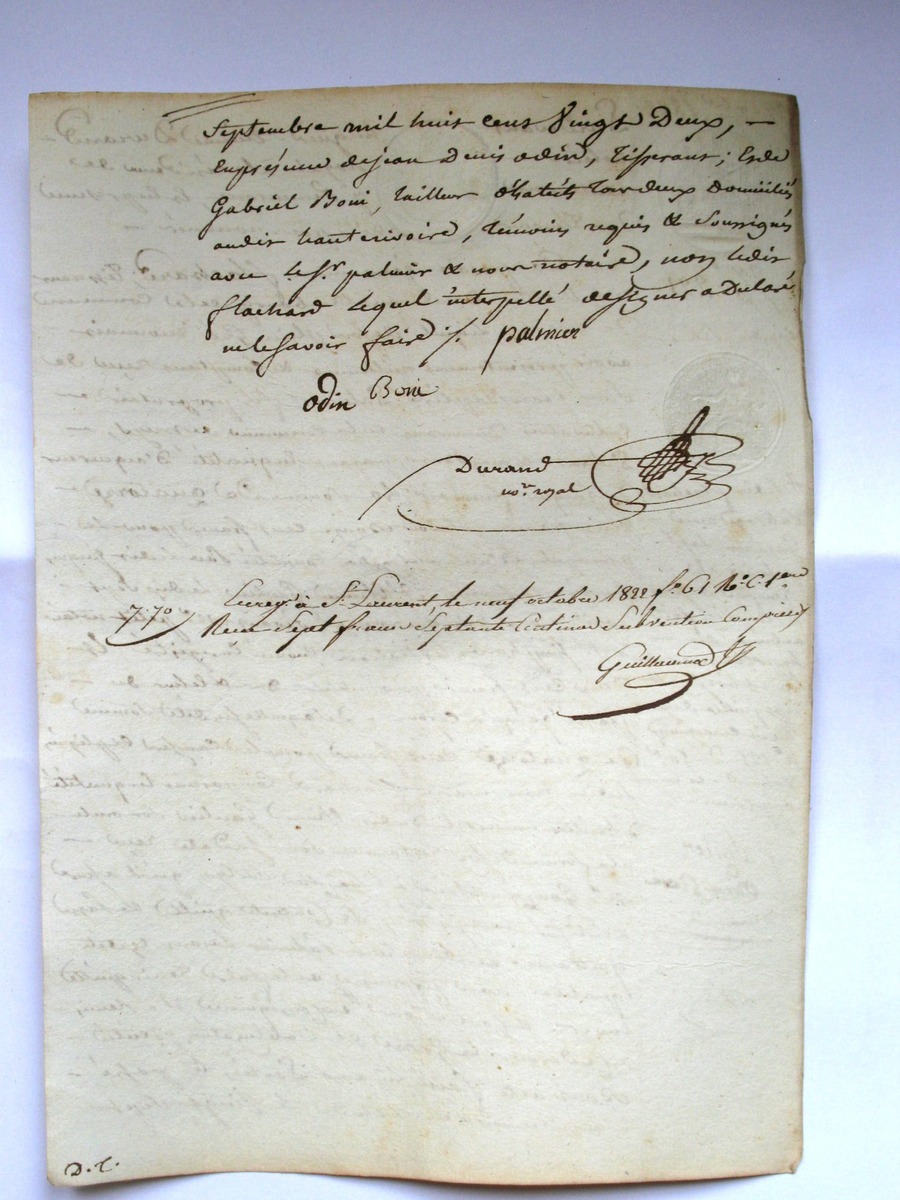 Septembre mil huit cent Vingt Deux, —
En présence de jean Denis odin, tisserant; et de
Gabriel Boni, tailleur d'habits tous deux domiciliés
audit hauterivoire, témoins requis & soussignés
avec le Sr. palmier & nous notaire, non ledit
flachard lequel interpellé de signer a Déclaré
ne le Savoir faire ./. palmier
odin Boni
Durand
nore. royal
7.70 Enreg. à St. Laurent, le neuf octobre 1822 fo. 61 Ro. C. 1ere
Reçu Sept francs Septante Centimes Subvention Comprise
D. C.